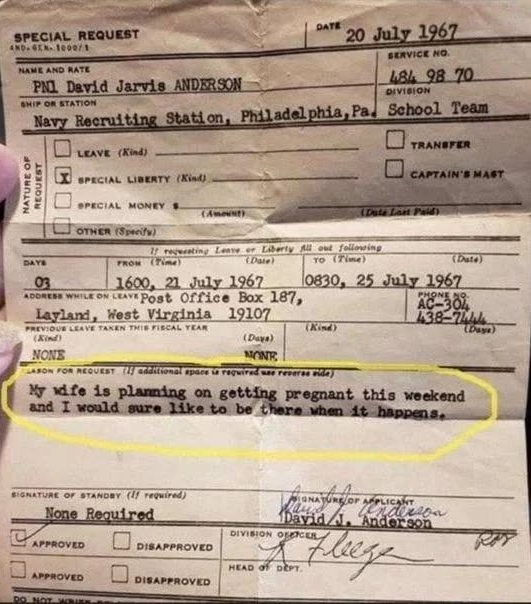 SPECIAL REQUEST
DATE 20 July 1967
SERVICE NO.
NAME AND RATE
484 98 70
PN1 David Jarvis ANDERSON
DIVISION
SHIP OR STATION
Navy Recruiting Station, Philadelphia,Pa. School Team
NATURE OF REQUEST
LEAVE (Kind)
TRANSFER
X SPECIAL LIBERTY (Kind)
CAPTAIN'S MAST
SPECIAL MONEY $
(Amount) (Date Last Paid)
OTHER (Specify)
If requesting Leave or Liberty fill out following
DAYS FROM (Time) (Date) TO (Time) (Date)
03 1600, 21 July 1967 0830, 25 July 1967
ADDRESS WHILE ON LEAVE Post Office Box 187, PHONE NO.
AC-304
Layland, West Virginia 19107 438-7444
PREVIOUS LEAVE TAKEN THIS FISCAL YEAR
(Kind) (Days) (Kind) (Days)
NONE NONE
REASON FOR REQUEST (If additional space is required use reverse side)
My wife is planning on getting pregnant this weekend
and I would sure like to be there when it happens.
SIGNATURE OF STANDBY (If required) SIGNATURE OF APPLICANT
David J. Anderson
None Required David J. Anderson
APPROVED DISAPPROVED DIVISION OFFICER
HEAD OF DEPT.
APPROVED DISAPPROVED